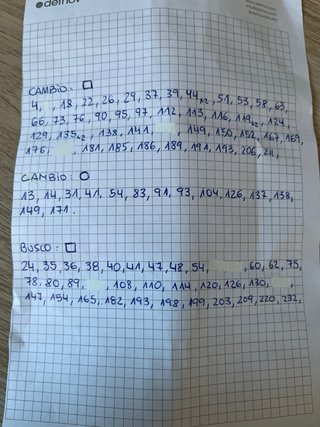 CAMBIO: □
4, , 18, 22, 26, 29, 37, 39, 44x2, 51, 53, 58, 63,
66, 73, 76, 90, 95, 97, 112, 113, 116, 119x2, 124,
129, 135x2, 138, 141, , 149, 150, 152, 167, 169,
176, , 181, 185, 186, 189, 191, 193, 206, 211,
CAMBIO: ○
13, 14, 31, 41, 54, 83, 91, 93, 104, 126, 137, 138,
149, 171.
BUSCO: □
24, 35, 36, 38, 40, 41, 47, 48, 54, , 60, 62, 75,
78, 80, 89, , 108, 110, 114, 120, 126, 130, ,
147, 154, 165, 182, 193, 198, 199, 203, 209, 220, 232,